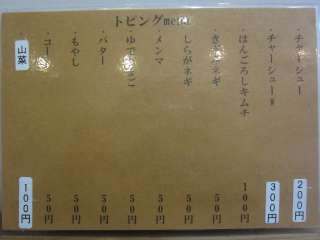 トピングmenu
・チャーシュー 200円
・チャーシューW 300円
・はんごろしキムチ 100円
・きざみネギ 50円
・しらがネギ 50円
・メンマ 50円
・ゆでたまご 50円
・バター 50円
・もやし 50円
・コーン 50円
山菜 100円